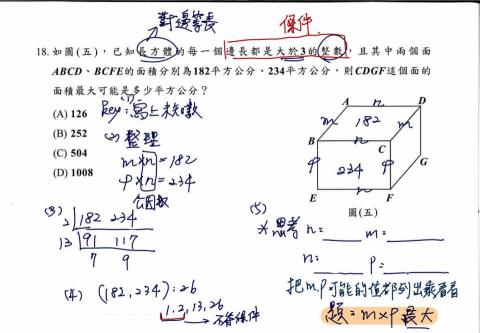 對邊等長
條件
18. 如圖(五)，已知長方體的每一個邊長都是大於3的整數，且其中兩個面
ABCD、BCFE的面積分別為182平方公分、234平方公分，則CDGF這個面的
面積最大可能是多少平方公分？
(A) 126
(B) 252
(C) 504
(D) 1008
key：(1) 寫上未知數
(2) 整理
m×n=182
p×n=234
公因數
A n D
m 182 m
B n C
p 234 p G
E n F
圖(五)
(3)
2 182 234
13 91 117
7 9
(4) (182,234)：26
1,2,13,26
不符條件
(5)
※思考 n=____ m=____
n=____ p=____
把m.p可能的值都列出乘看看
題=m×p最大